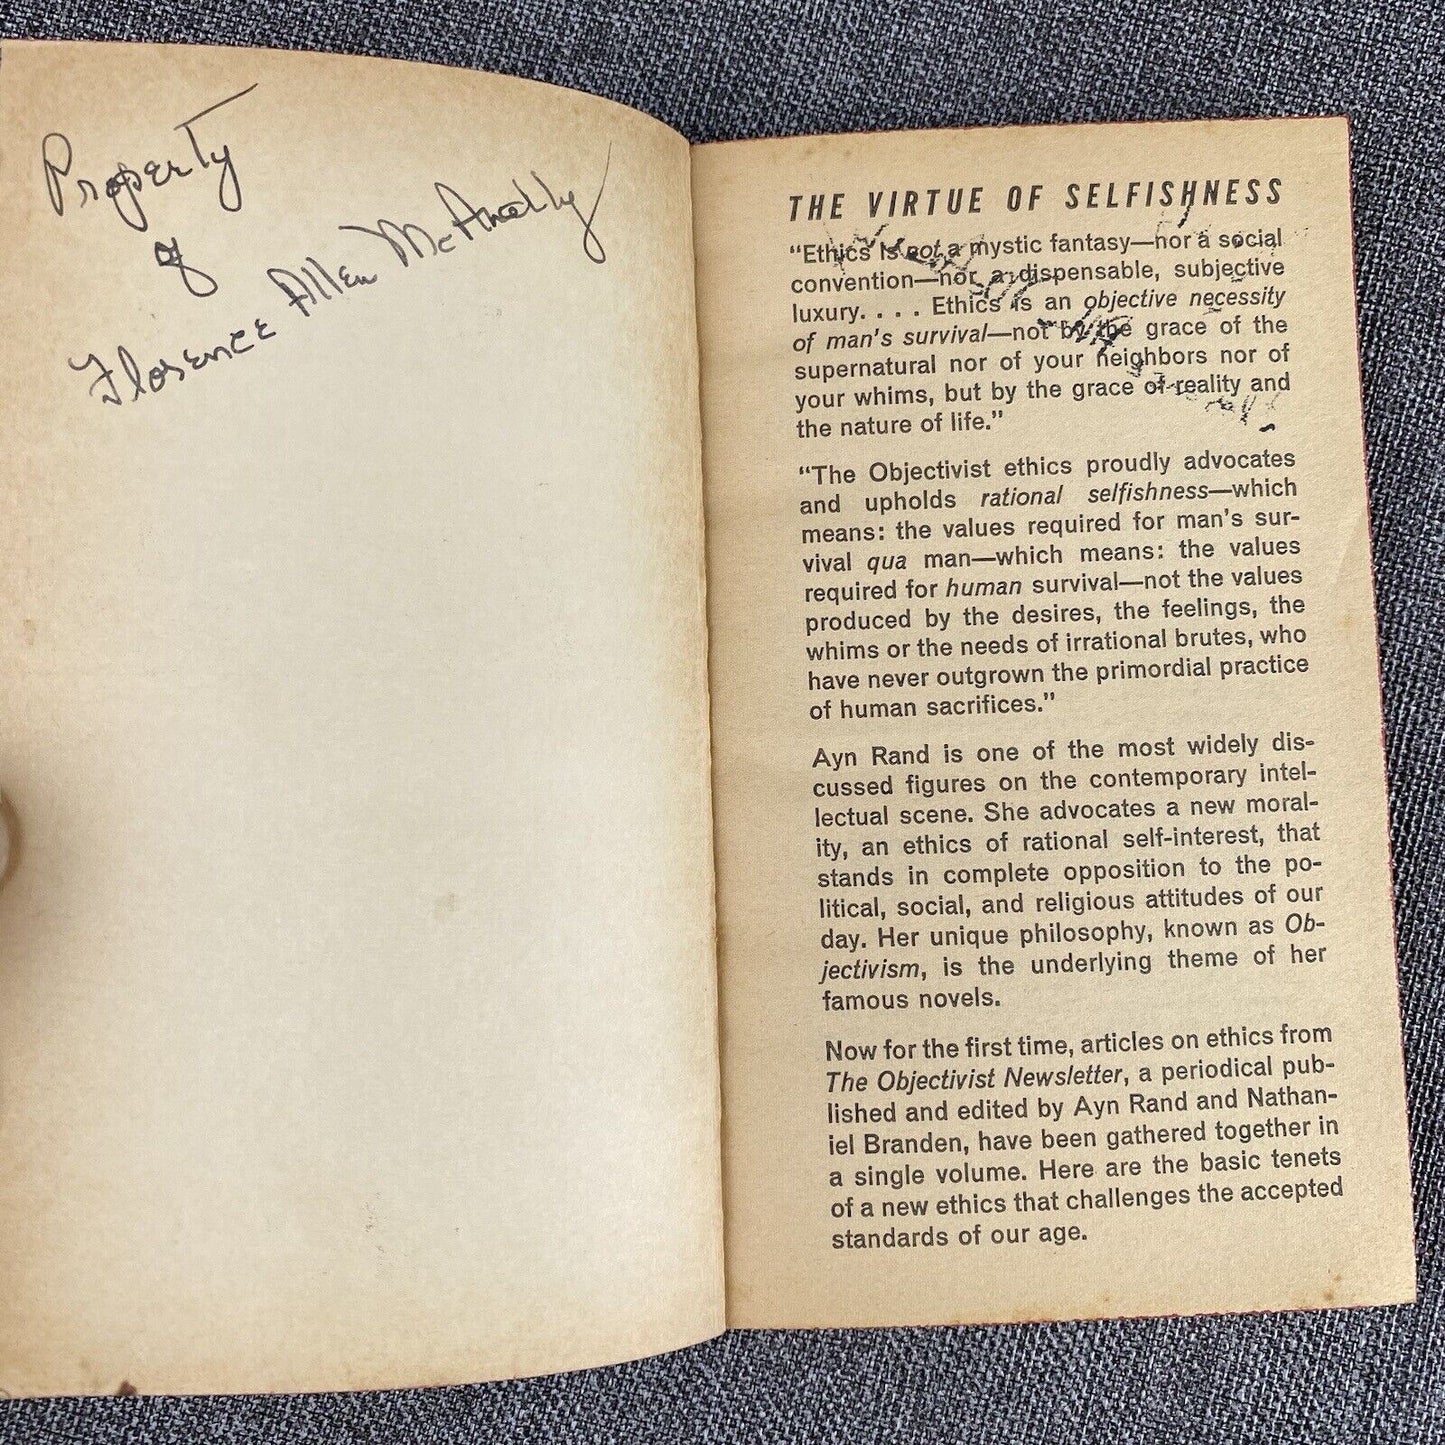 Property
of
Florence Allen McAnally
THE VIRTUE OF SELFISHNESS
“Ethics is not a mystic fantasy—nor a social
convention—nor a dispensable, subjective
luxury. . . . Ethics is an objective necessity
of man's survival—not by the grace of the
supernatural nor of your neighbors nor of
your whims, but by the grace of reality and
the nature of life.”
“The Objectivist ethics proudly advocates
and upholds rational selfishness—which
means: the values required for man's sur-
vival qua man—which means: the values
required for human survival—not the values
produced by the desires, the feelings, the
whims or the needs of irrational brutes, who
have never outgrown the primordial practice
of human sacrifices.”
Ayn Rand is one of the most widely dis-
cussed figures on the contemporary intel-
lectual scene. She advocates a new moral-
ity, an ethics of rational self-interest, that
stands in complete opposition to the po-
litical, social, and religious attitudes of our
day. Her unique philosophy, known as Ob-
jectivism, is the underlying theme of her
famous novels.
Now for the first time, articles on ethics from
The Objectivist Newsletter, a periodical pub-
lished and edited by Ayn Rand and Nathan-
iel Branden, have been gathered together in
a single volume. Here are the basic tenets
of a new ethics that challenges the accepted
standards of our age.